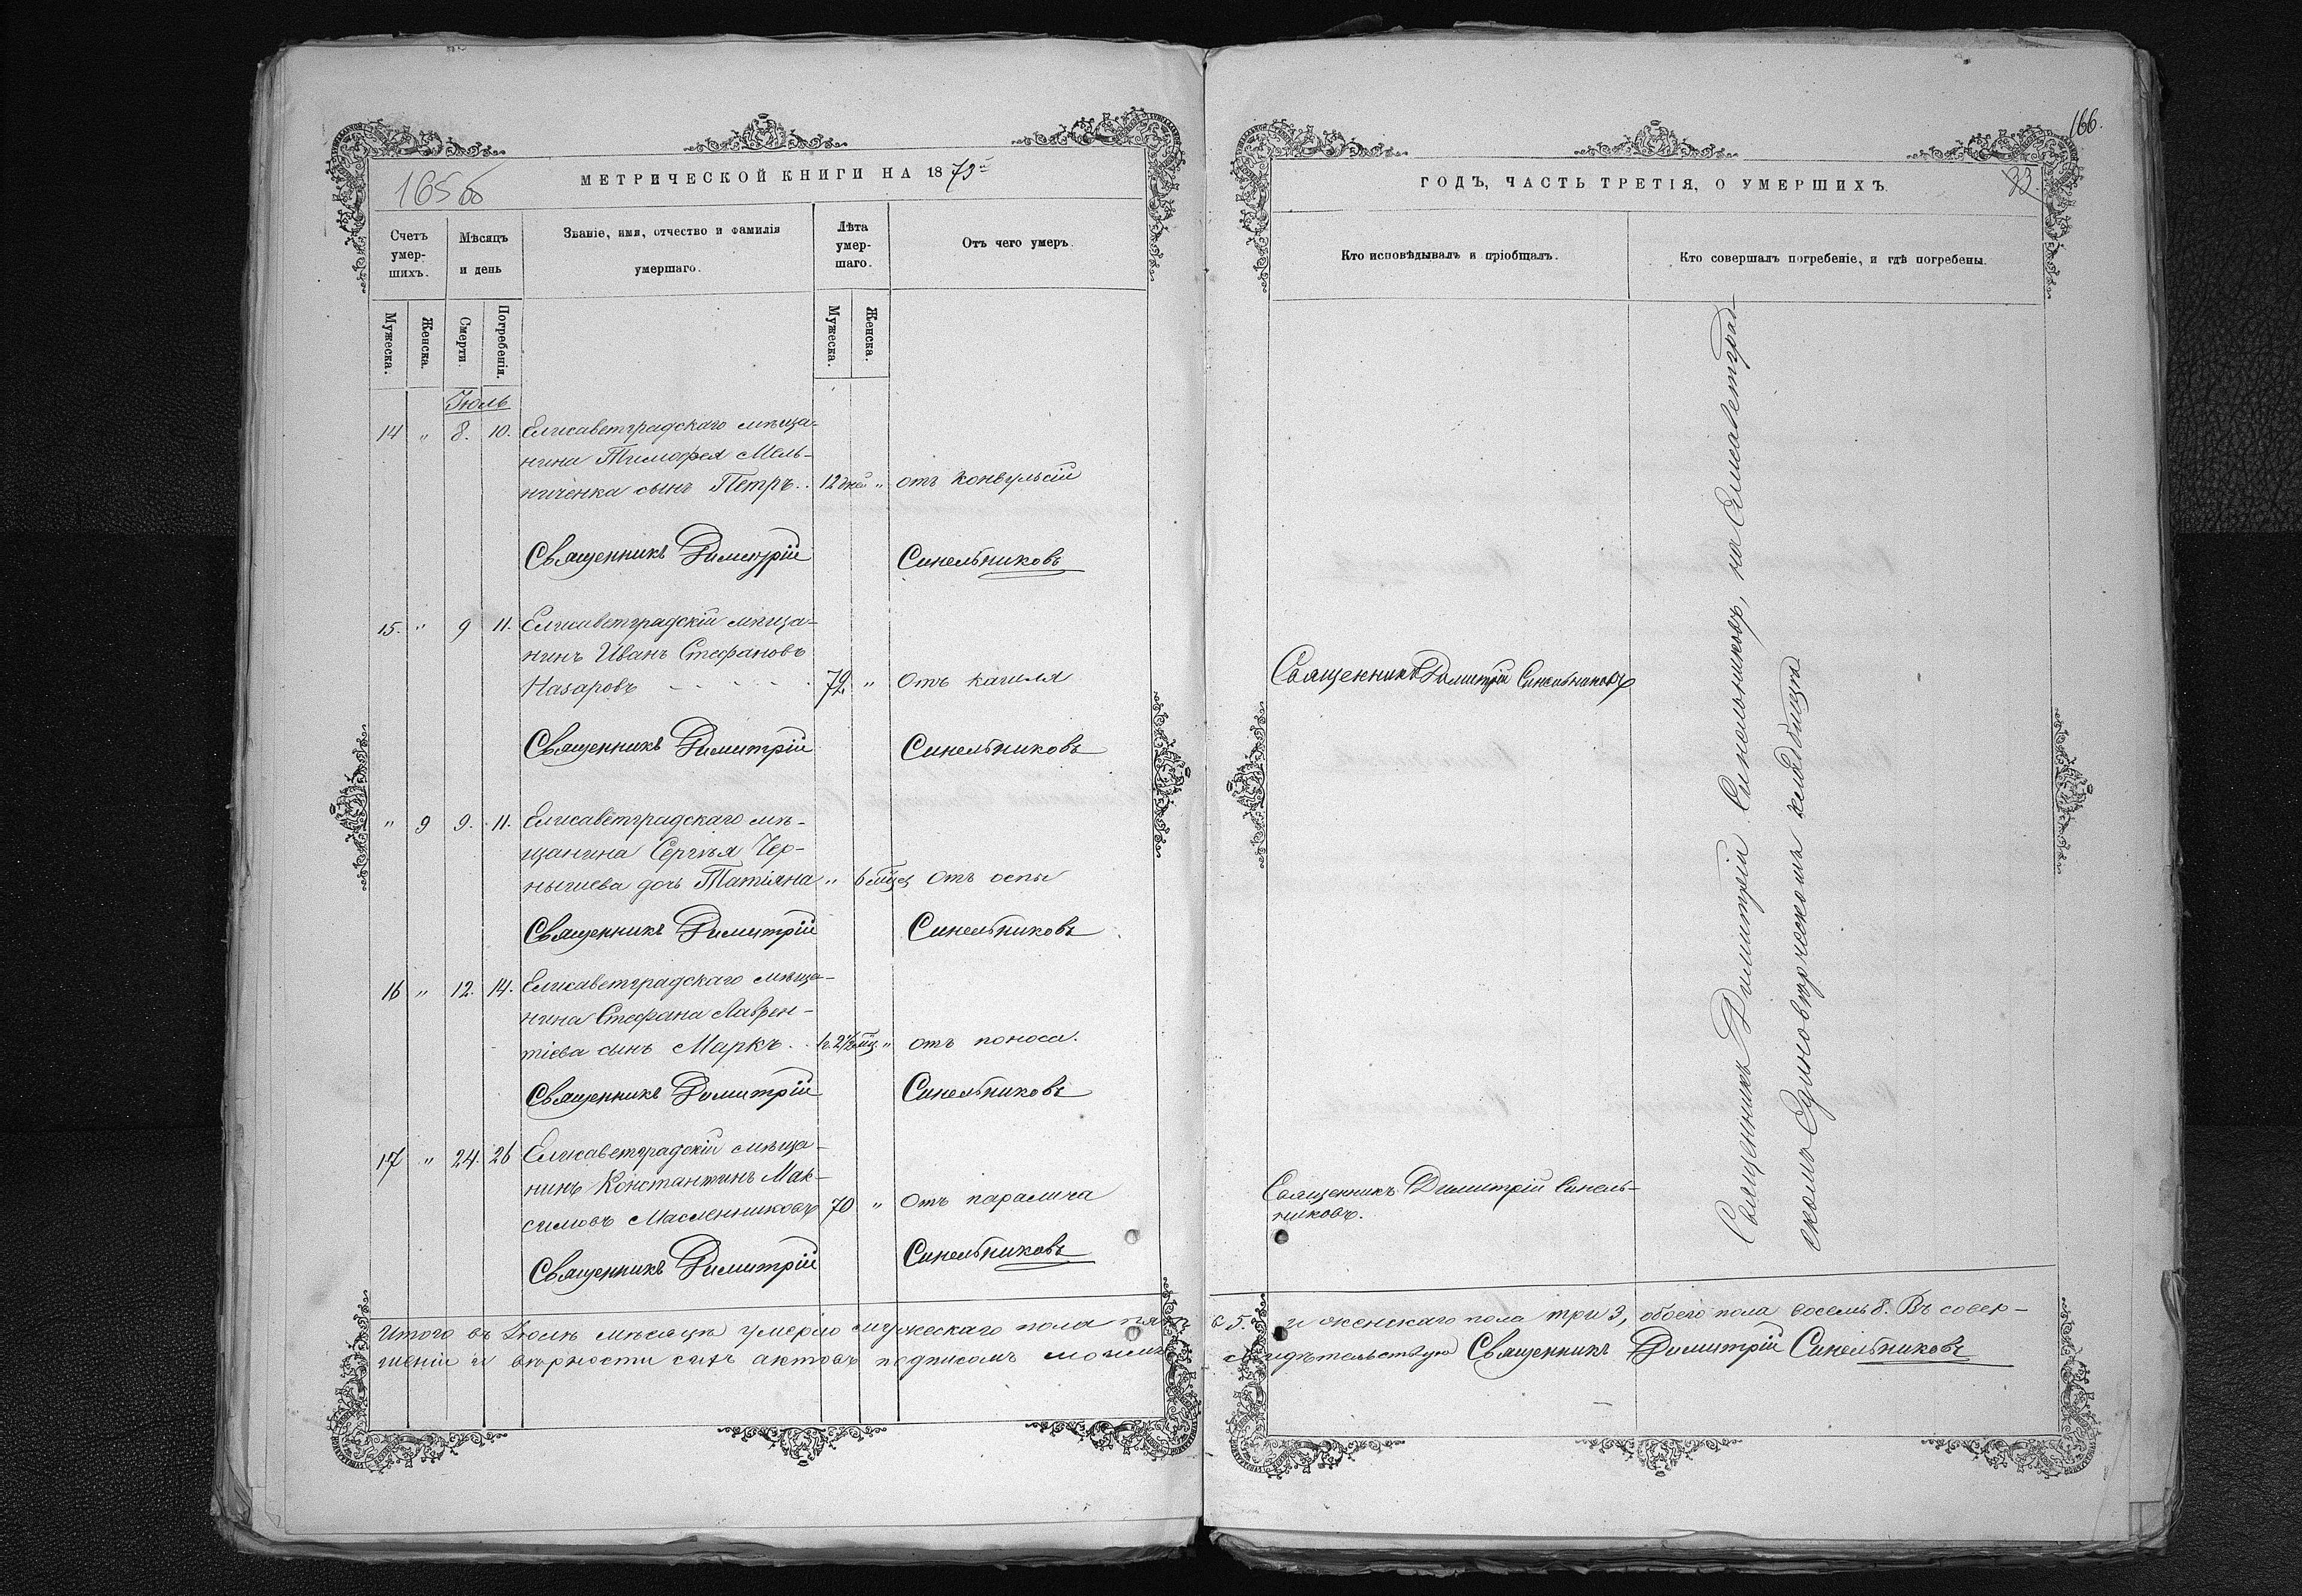 165 об
МЕТРИЧЕСКОЙ КНИГИ НА 1875
Счетъ умершихъ.
Мѣсяцъ и день
Званіе, имя, отчество и фамилія умершаго.
Лѣта умершаго.
Отъ чего умеръ.
Мужеска.
Женска.
Смерти.
Погребенія.
Мужеска.
Женска.
Іюль
14 „ 8. 10. Елисаветградскаго мѣща-
нина Тимофея Мель-
ниченка сынъ Петръ. 12 дней „ отъ конвульсій
Священникъ Димитрій Синельниковъ
15. „ 9 11. Елисаветградскій мѣща-
нинъ Иванъ Стефановъ
Назаровъ - - - - - 72 „ Отъ кашля
Священникъ Димитрій Синельниковъ
„ 9 9. 11. Елисаветградскаго мѣ-
щанина Сергѣя Чер-
нышева дочь Татіяна „ 6 мѣц Отъ оспы
Священникъ Димитрій Синельниковъ
16 „ 12. 14. Елисаветградскаго мѣща-
нина Стефана Лаврен-
тіева сынъ Маркъ. „ отъ поноса.
Священникъ Димитрій Синельниковъ
17 „ 24. 26 Елисаветградскій мѣща-
нинъ Константинъ Мак-
симовъ Масленниковъ 70 „ Отъ паралича
Священникъ Димитрій Синельниковъ
Итого въ Іюлѣ мѣсяцѣ умерло мужескаго пола пять
шеніи и вѣрности сихъ актовъ подписомъ моимъ
166.
33.
ГОДЪ, ЧАСТЬ ТРЕТІЯ, О УМЕРШИХЪ.
Кто исповѣдывалъ и пріобщалъ.
Кто совершалъ погребеніе, и гдѣ погребены.
Священникъ Димитрій Синельниковъ
Священникъ Димитрій Синель-
никовъ.
Священникъ Димитрій Синельниковъ, на Елисаветград-
скомъ Единовѣрческомъ кладбищѣ
5. и женскаго пола три 3, обоего пола восемь 8. Въ совер-
свидѣтельствую Священникъ Димитрій Синельниковъ